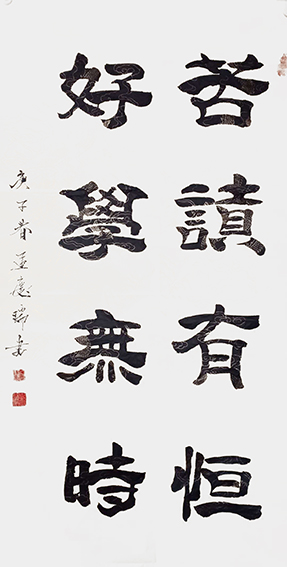 苦讀有恒
好學無時
庚子春